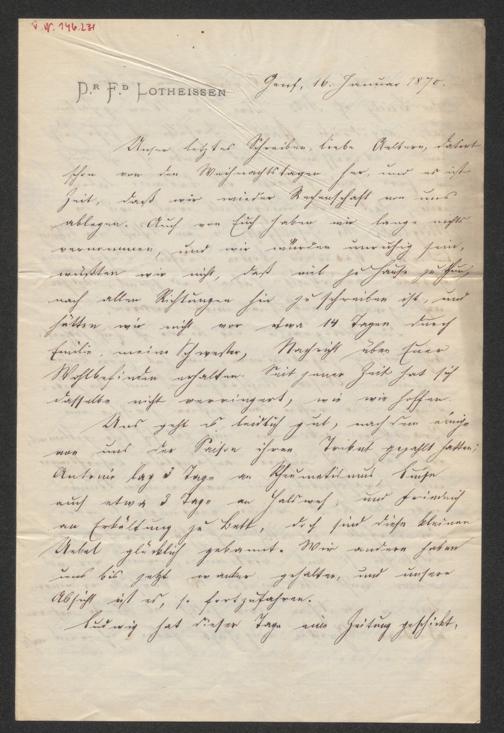 V. W. 146.231
DR FD LOTHEISSEN
Genf, 16. Januar 1870.
Unser letztes Schreiben, liebe Aeltern, datirt
schon von den Weihnachtstagen her, und es ist
Zeit, daß wir wieder Rechenschaft von uns
ablegen. Auch von Euch haben wir lange nichts
vernommen, und wir würden unruhig sein,
wüßten wir nicht, daß viel zu Hause zu thun,
nach allen Richtungen hin zu schreiben ist, und
hätten wir nicht vor etwa 14 Tagen durch
Emilie, meine Schwester, Nachricht über Euer
Wohlbefinden erhalten. Seit jener Zeit hat sich
dasselbe nicht verringert, wie wir hoffen.
Uns geht es leidlich gut, nachdem einige
von uns der Saison ihren Tribut gezahlt hatten;
Antonie lag 3 Tage an Rheumatismus, Luise
auch etwa 3 Tage an Halsweh, und Friedrich
an Erkältung zu Bett, doch sind diese kleinen
Uebel glücklich gebannt. Wir andere haben
uns bis jetzt wacker gehalten, und unsere
Absicht ist es, so fortzufahren.
Ludwig hat dieser Tage eine Zeitung geschickt,